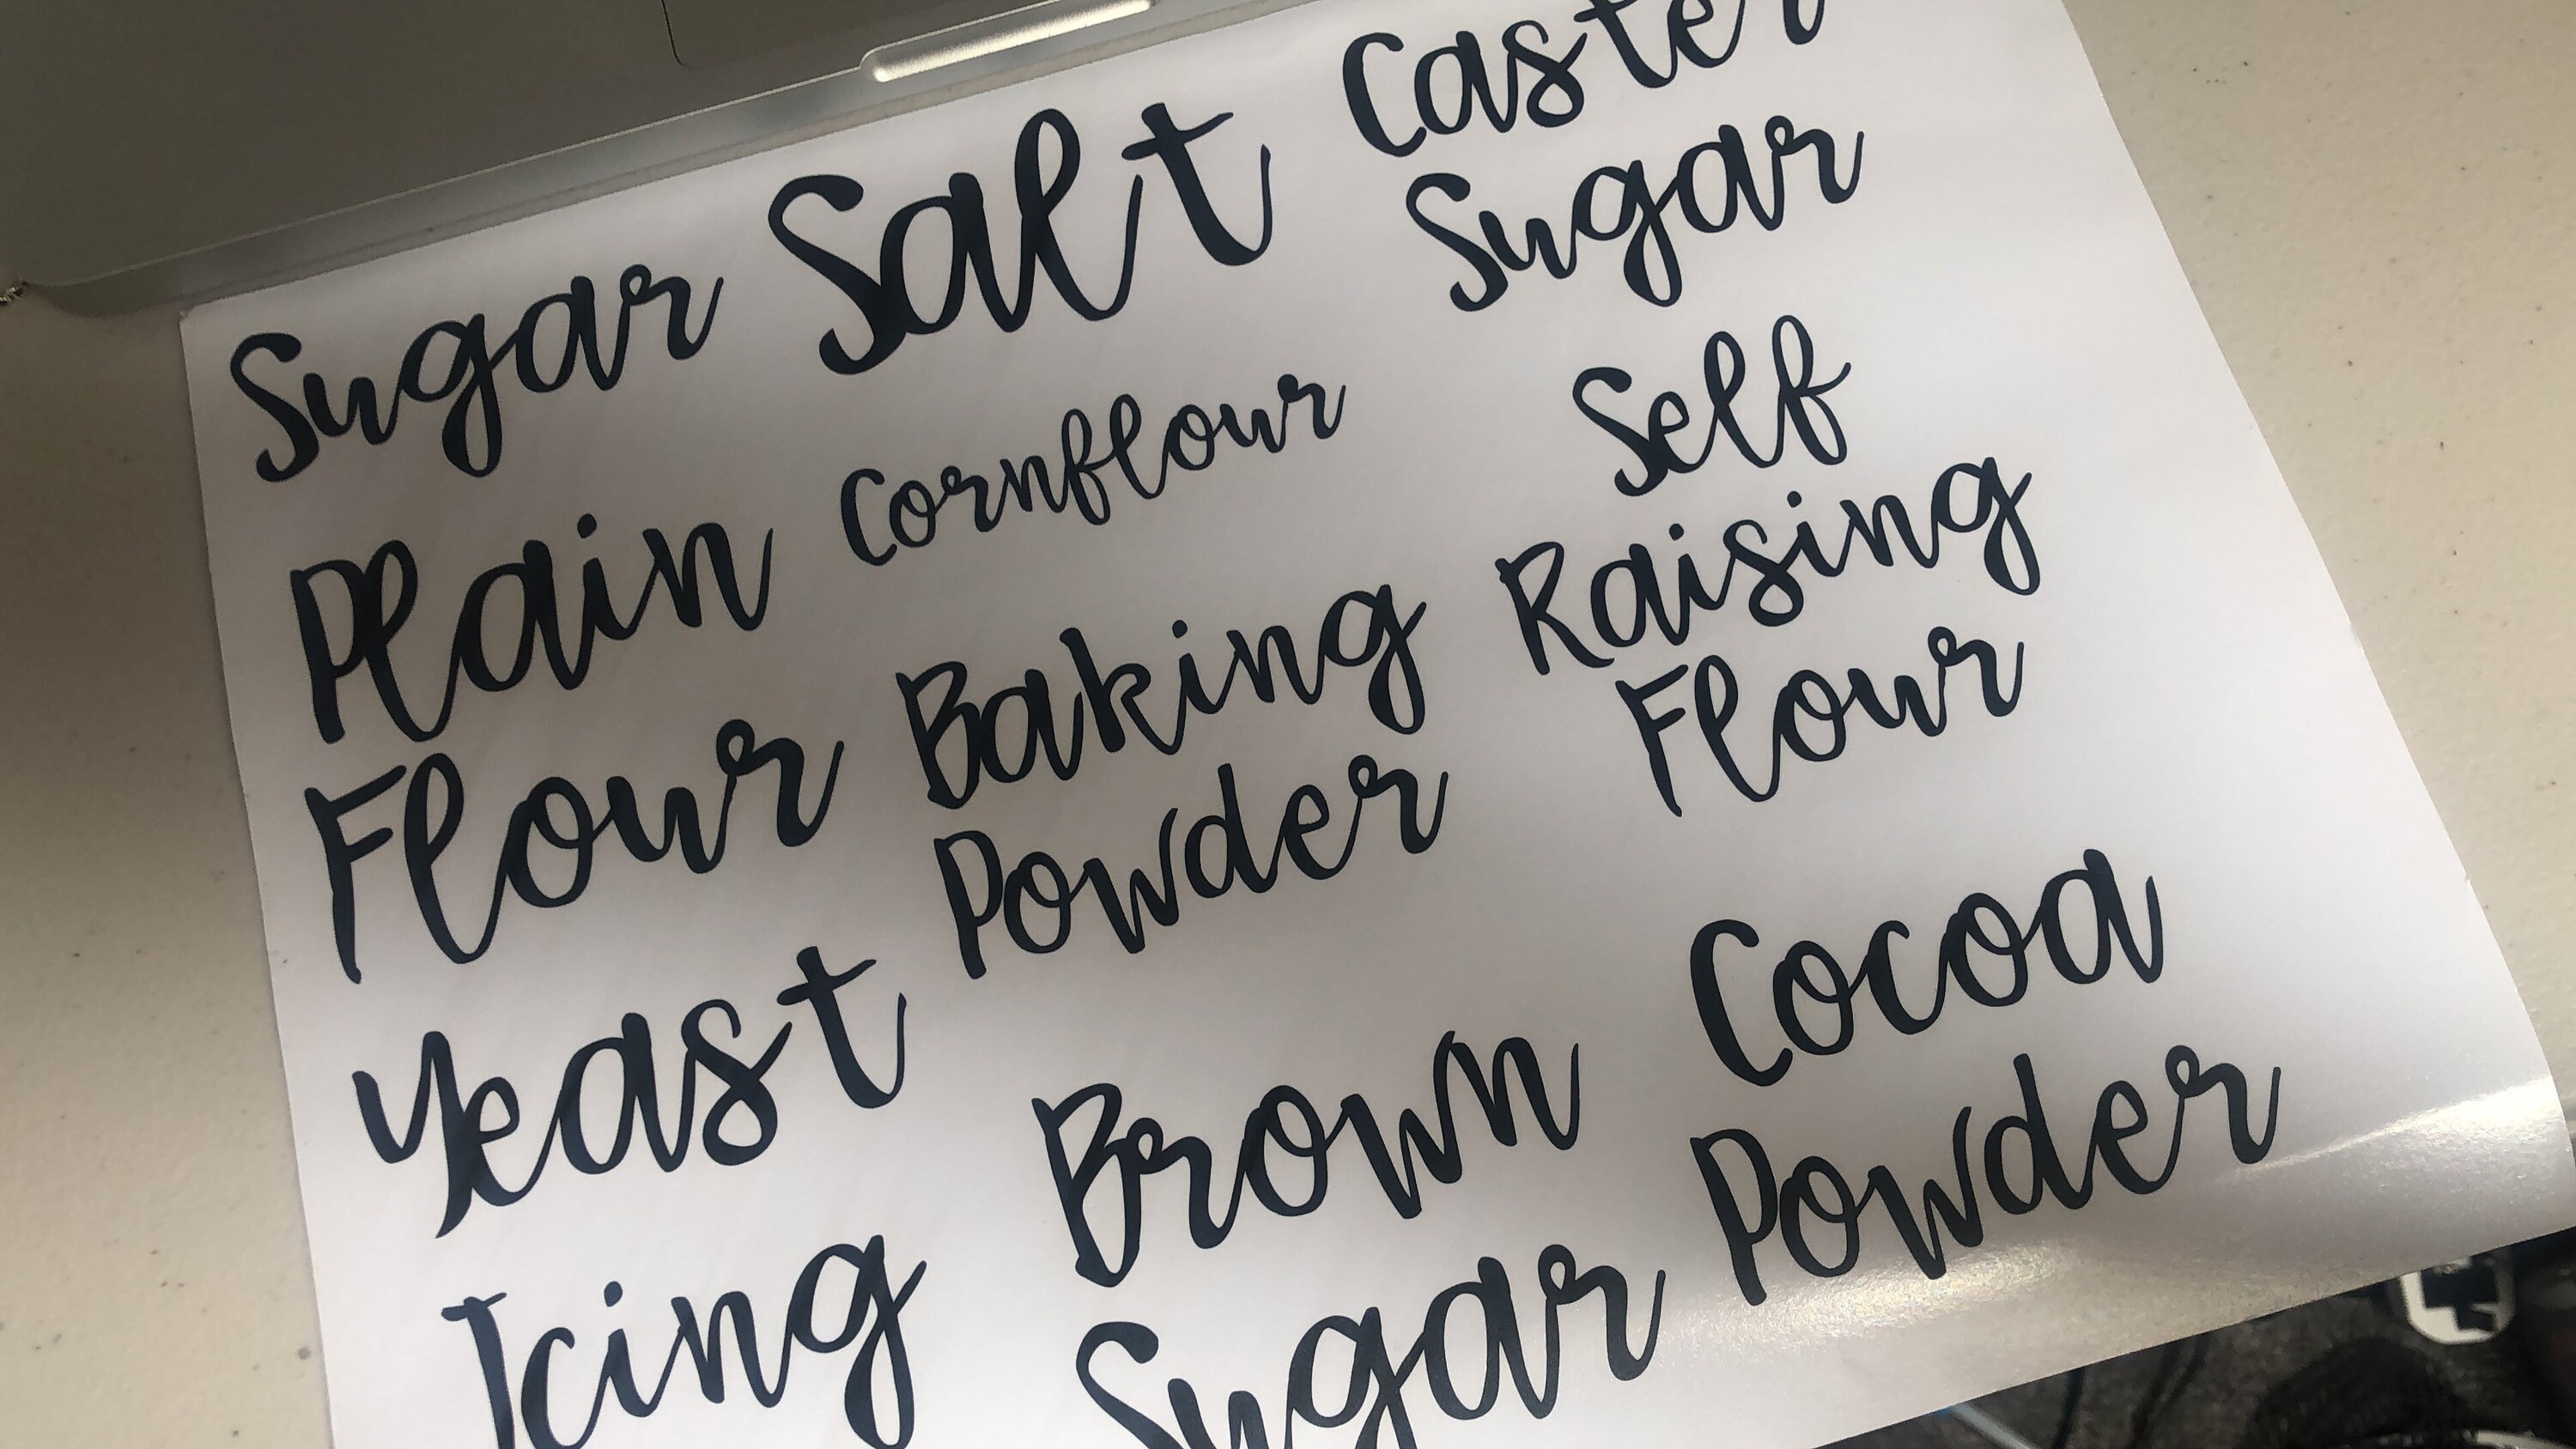 Sugar
Salt
Caster
Sugar
Plain
Flour
Cornflour
Self
Raising
Flour
Baking
Powder
Yeast
Cocoa
Powder
Brown
Sugar
Icing